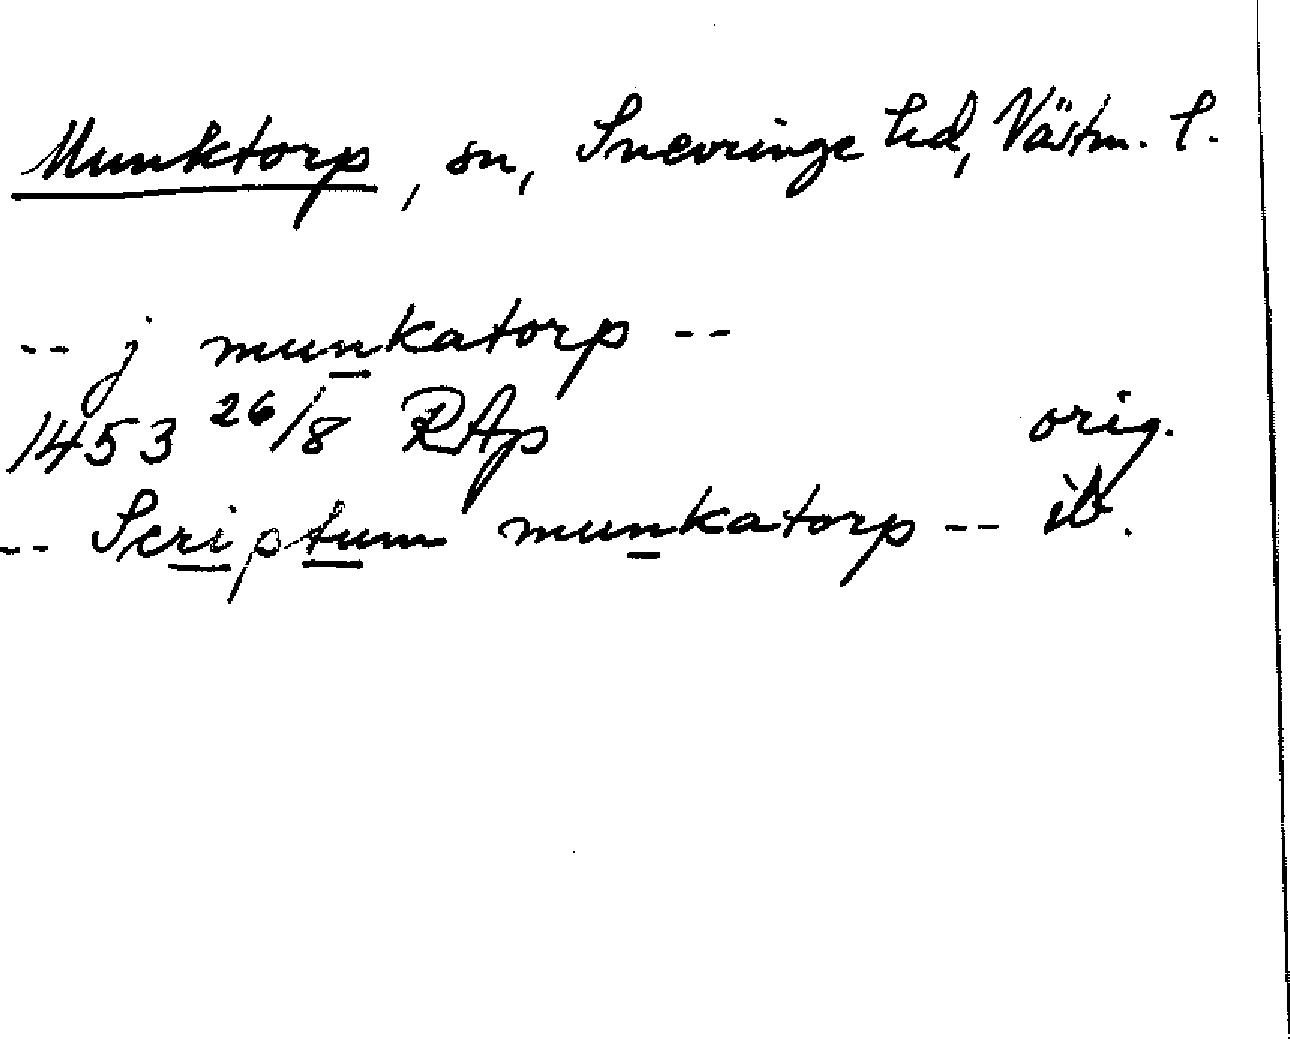 Munktorp, sn, Snevringe hd, Västm. l.
-- j munkatorp --
1453 26/8 RAp orig.
-- Scriptum munkatorp -- ib.